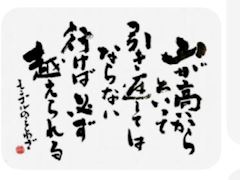 山が高いから
といって
引き返しては
ならない
行けば必ず
越えられる
モンゴルのことわざ